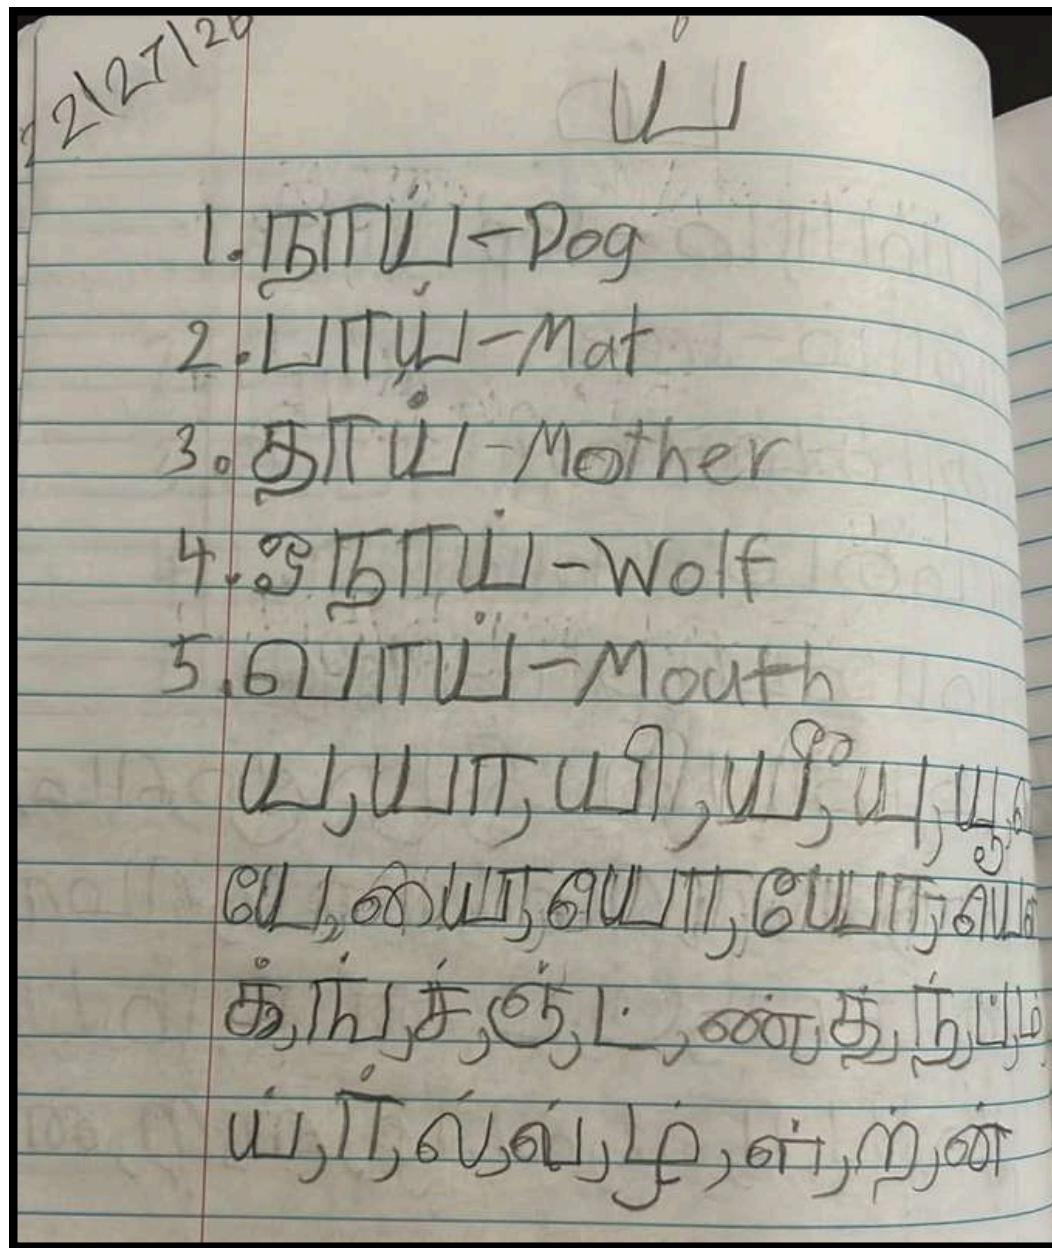 2/27/26
ய்
1. நாய் - Dog
2. பாய் - Mat
3. தாய் - Mother
4. ஓநாய் - Wolf
5. வாய் - Mouth
ய, யா, யி, யீ, யு, யூ,
யே, யை, யொ, யோ, யௌ
க், ங், ச், ஞ், ட், ண், த், ந், ப், ம்
ய், ர், ல், வ், ழ், ள், ற், ன்